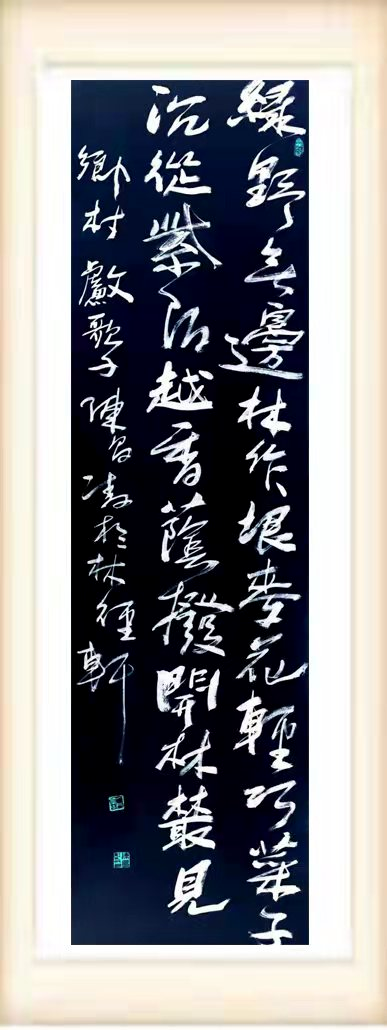 綠野無邊林作垠麥花輕巧菜子
沉從紫陌越香蔭撥開林叢見
鄉村 歌子 陳昌於林徑軒